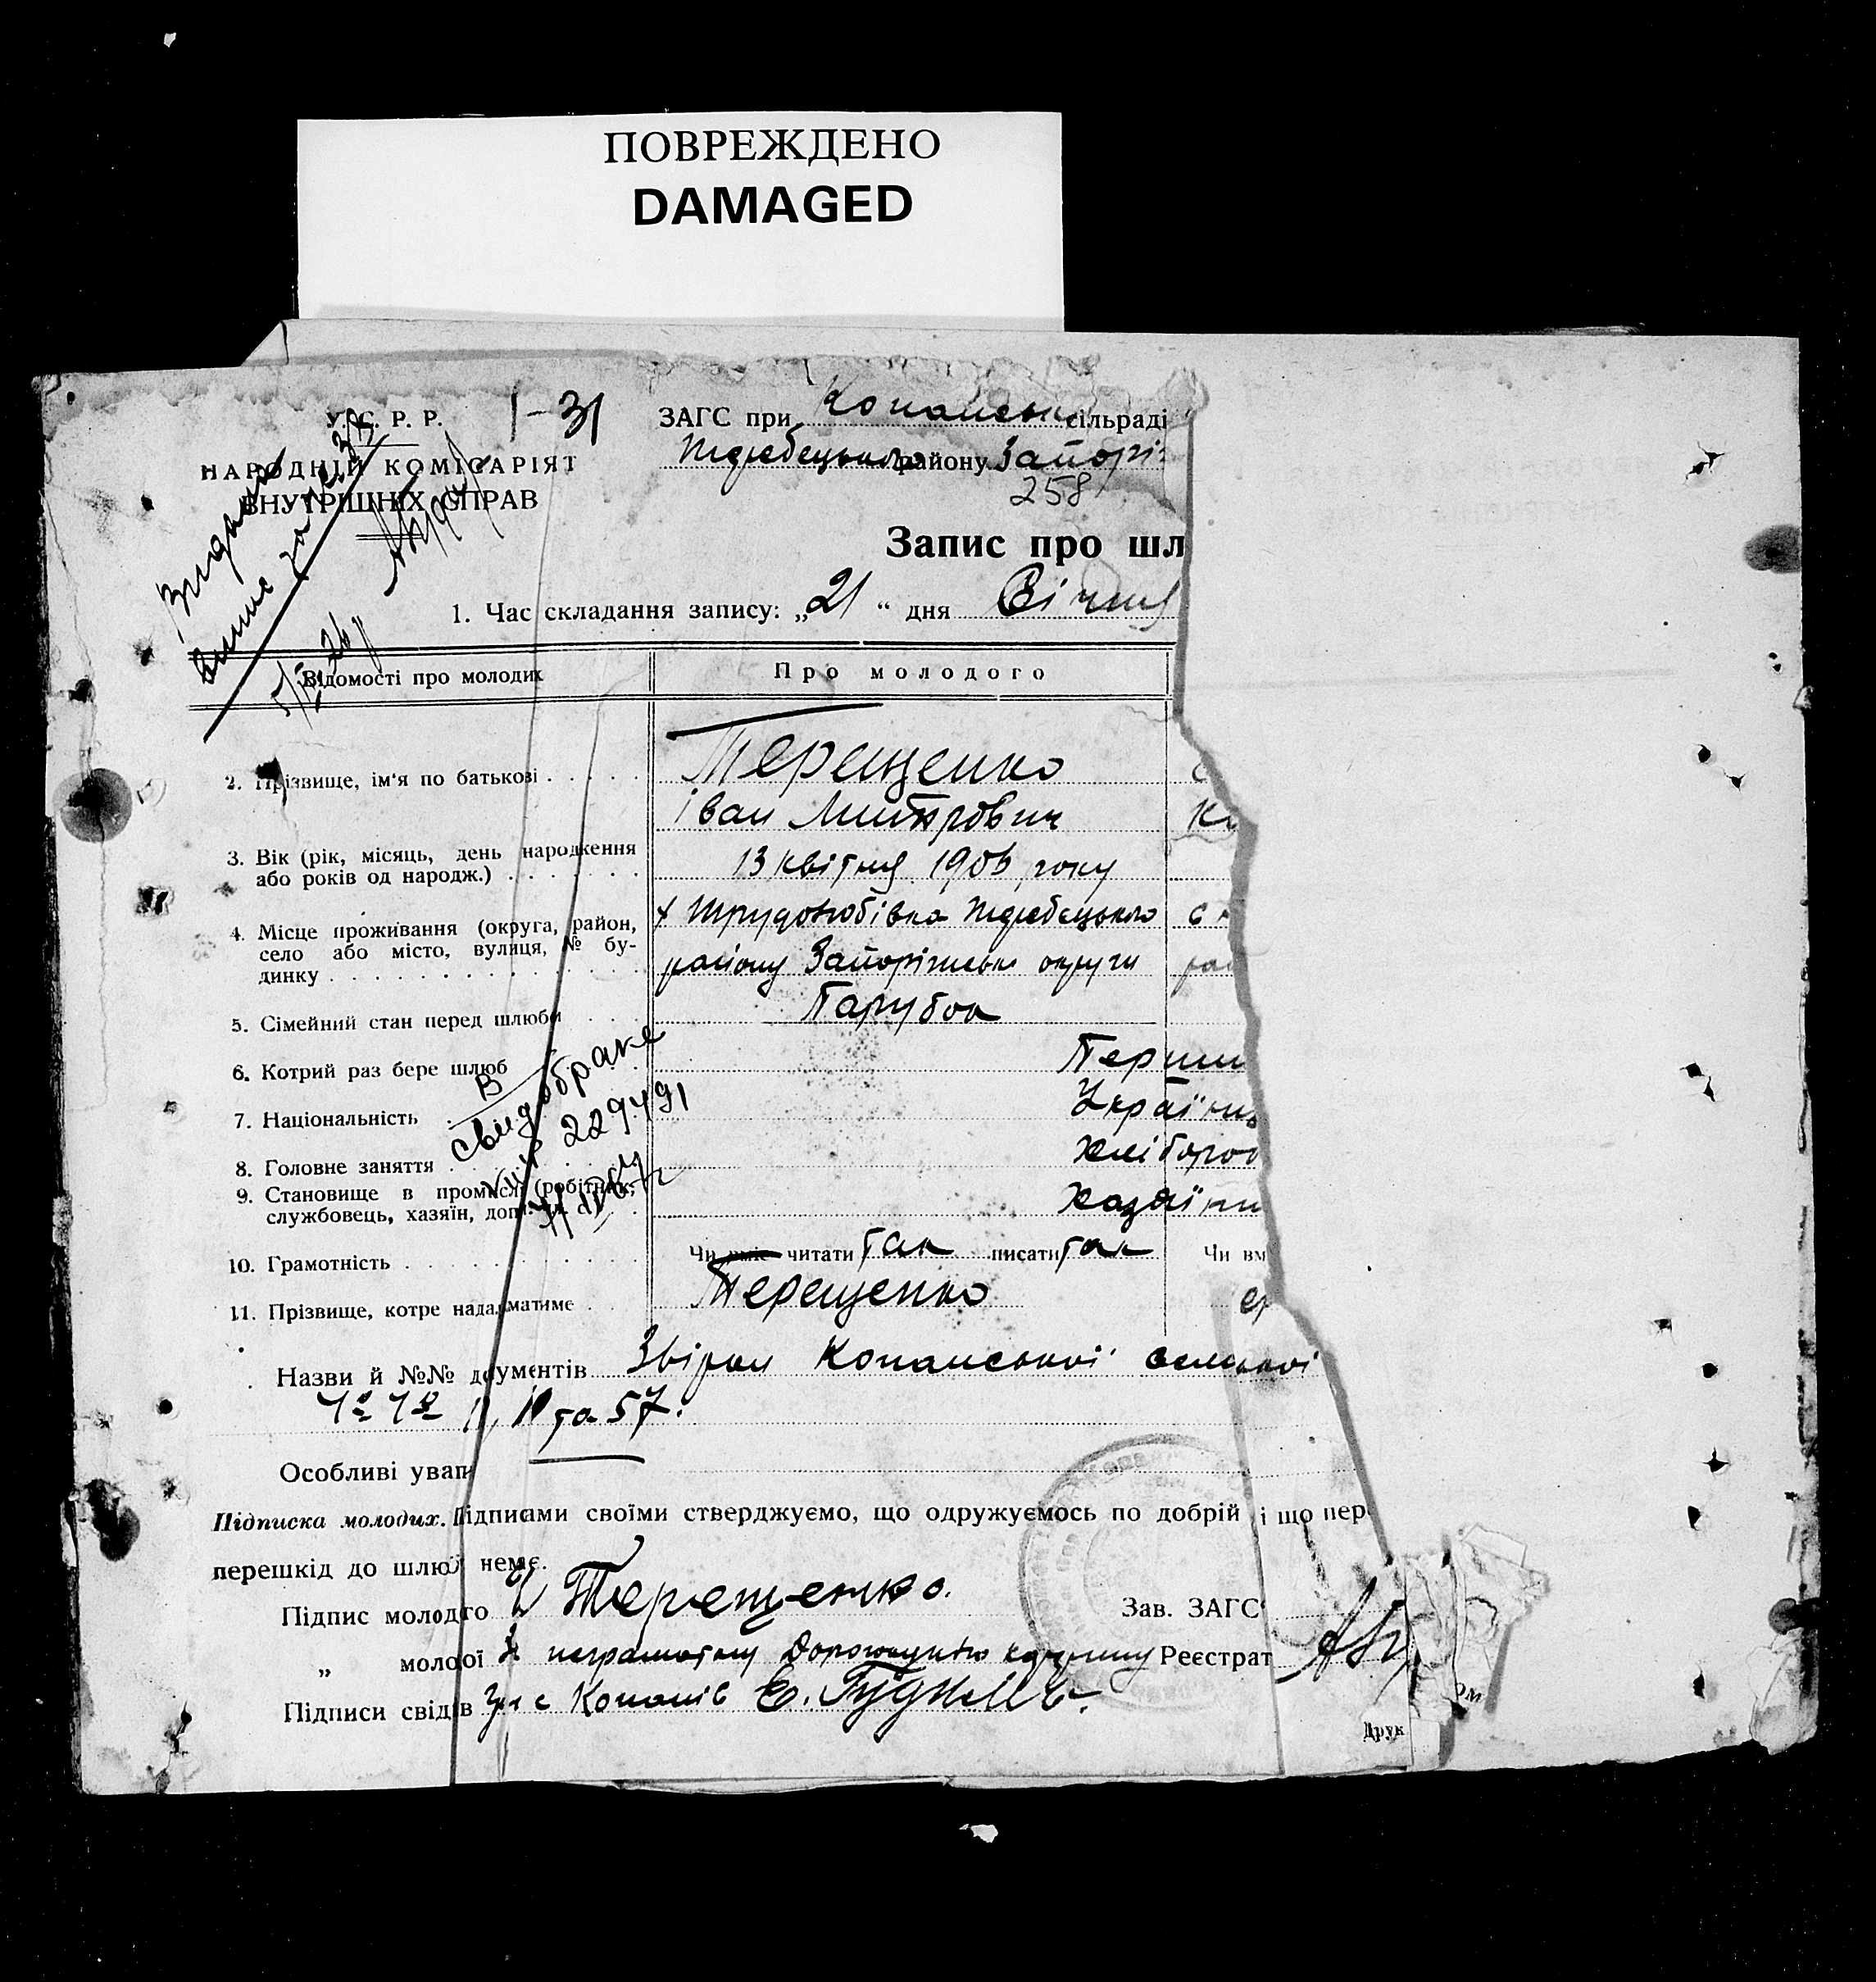 ПОВРЕЖДЕНО
DAMAGED
У. С. Р. Р.
НАРОДНІЙ КОМІСАРІЯТ
ВНУТРІШНІХ СПРАВ
1-31
ЗАГС при Копанськ сільраді
Жеребецького району Запоріз
258
Запис про шл
1. Час складання запису: „21“ дня Січня
Відомості про молодих
Про молодого
2. Прізвище, ім'я по батькові
Терещенко
Іван Митрович
Ки
3. Вік (рік, місяць, день народження
або років од народж.)
13 квітня 1906 року
4. Місце проживання (округа, район,
село або місто, вулиця, № бу-
динку
х Трудолюбівка Жеребецького
району Запорізської округи
5. Сімейний стан перед шлюбом
Парубок
6. Котрий раз бере шлюб
Перши
7. Національність
Україн
8. Головне заняття
Хлібороб
9. Становище в промислі (робітник,
службовець, хазяїн, доп.
Хазяїни
В
свид о браке
229491
10. Грамотність
Чи вміє читати так писати так
Чи вм
11. Прізвище, котре надалі матиме
Терещенко
Назви й №№ документів Збірки Копанської сельської
та 57.
Особливі уваги
Підписка молодих. Підписами своїми стверджуємо, що одружуємось по добрій і що пер
перешкід до шлюб немає.
Підпис молодого Терещенко.
Зав. ЗАГС
„ молодої неграмотну
Реєстрат
Підписи свідків гр с Копанів Є.
ом
Друк